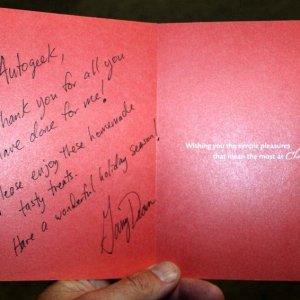 Autogeek,
Thank you for all you
have done for me!
Please enjoy these homemade
tasty treats.
Have a wonderful holiday season!
Wishing you the simple pleasures
that mean the most at